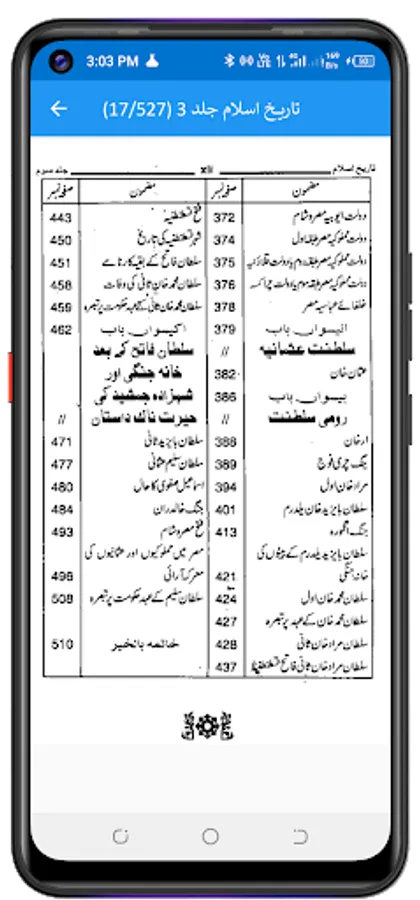 3:03 PM
تاریخ اسلام جلد 3 (17/527)
تاریخ اسلام xii جلد سوم
مضمون صفحہ نمبر
دولت ایوبیہ مصر و شام 372
دولت مملوکیہ مصر طبقہ اول 374
دولت مملوکیہ مصر طبقہ دوم یا دولت قلاؤنیہ 375
دولت مملوکیہ مصر طبقہ سوم یا دولت چراکسہ 376
خلفائے عباسیہ مصر 378
انیسواں باب 379
سلطنت عثمانیہ //
عثمان خان 382
بیسواں باب 386
رومی سلطنت //
ارخان 388
ینگ چری فوج 389
مراد خان اول 394
سلطان بایزید خان یلدرم 401
جنگ انگورہ 413
سلطان بایزید یلدرم کے بیٹوں کی
خانہ جنگی 421
سلطان محمد خان اول 424
سلطان محمد خان کے عہد پر تبصرہ 427
سلطان مراد خان ثانی 428
سلطان مراد خان ثانی فاتح قسطنطنیہ 437
مضمون صفحہ نمبر
فتح قسطنطنیہ 443
شہر قسطنطنیہ کی تاریخ 450
سلطان فاتح کے بقیہ کارنامے 451
سلطان محمد خان ثانی کی وفات 458
سلطان محمد خان ثانی کے عہد حکومت پر تبصرہ 459
اکیسواں باب 462
سلطان فاتح کے بعد
خانہ جنگی اور
شہزادہ جمشید کی
حیرت ناک داستان //
سلطان بایزید ثانی 471
سلطان سلیم عثمانی 477
اسماعیل صفوی کا حال 480
جنگ خالدران 484
فتح مصر و شام 493
مصر میں مملوکیوں اور عثمانیوں کی
معرکہ آرائی 496
سلطان سلیم کے عہد حکومت پر تبصرہ 508
خاتمہ بالخیر 510